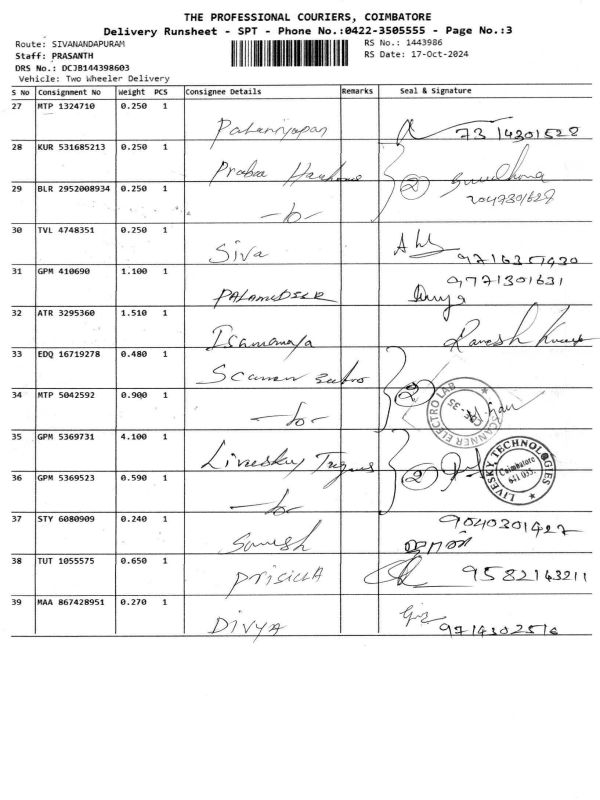 THE PROFESSIONAL COURIERS, COIMBATORE
Delivery Runsheet - SPT - Phone No.:0422-3505555 - Page No.:3
Route: SIVANANDAPURAM
RS No.: 1443986
Staff: PRASANTH
RS Date: 17-Oct-2024
DRS No.: DCJB144398603
Vehicle: Two Wheeler Delivery
S No Consignment No Weight PCS Consignee Details Remarks Seal & Signature
27 MTP 1324710 0.250 1
28 KUR 531685213 0.250 1
29 BLR 2952008934 0.250 1 -do-
30 TVL 4748351 0.250 1 Siva
31 GPM 410690 1.100 1
32 ATR 3295360 1.510 1
33 EDQ 16719278 0.480 1 Scanner
34 MTP 5042592 0.900 1 -do- 2 SCANNER ELECTRO LAB CBE-35
35 GPM 5369731 4.100 1 Livesky
36 GPM 5369523 0.590 1 -do- 2 LIVESKY TECHNOLOGIES Coimbatore 641 035.
37 STY 6080909 0.240 1 9040301427
38 TUT 1055575 0.650 1 PRISILLA 9582143211
39 MAA 867428951 0.270 1 DIVYA 9714302516